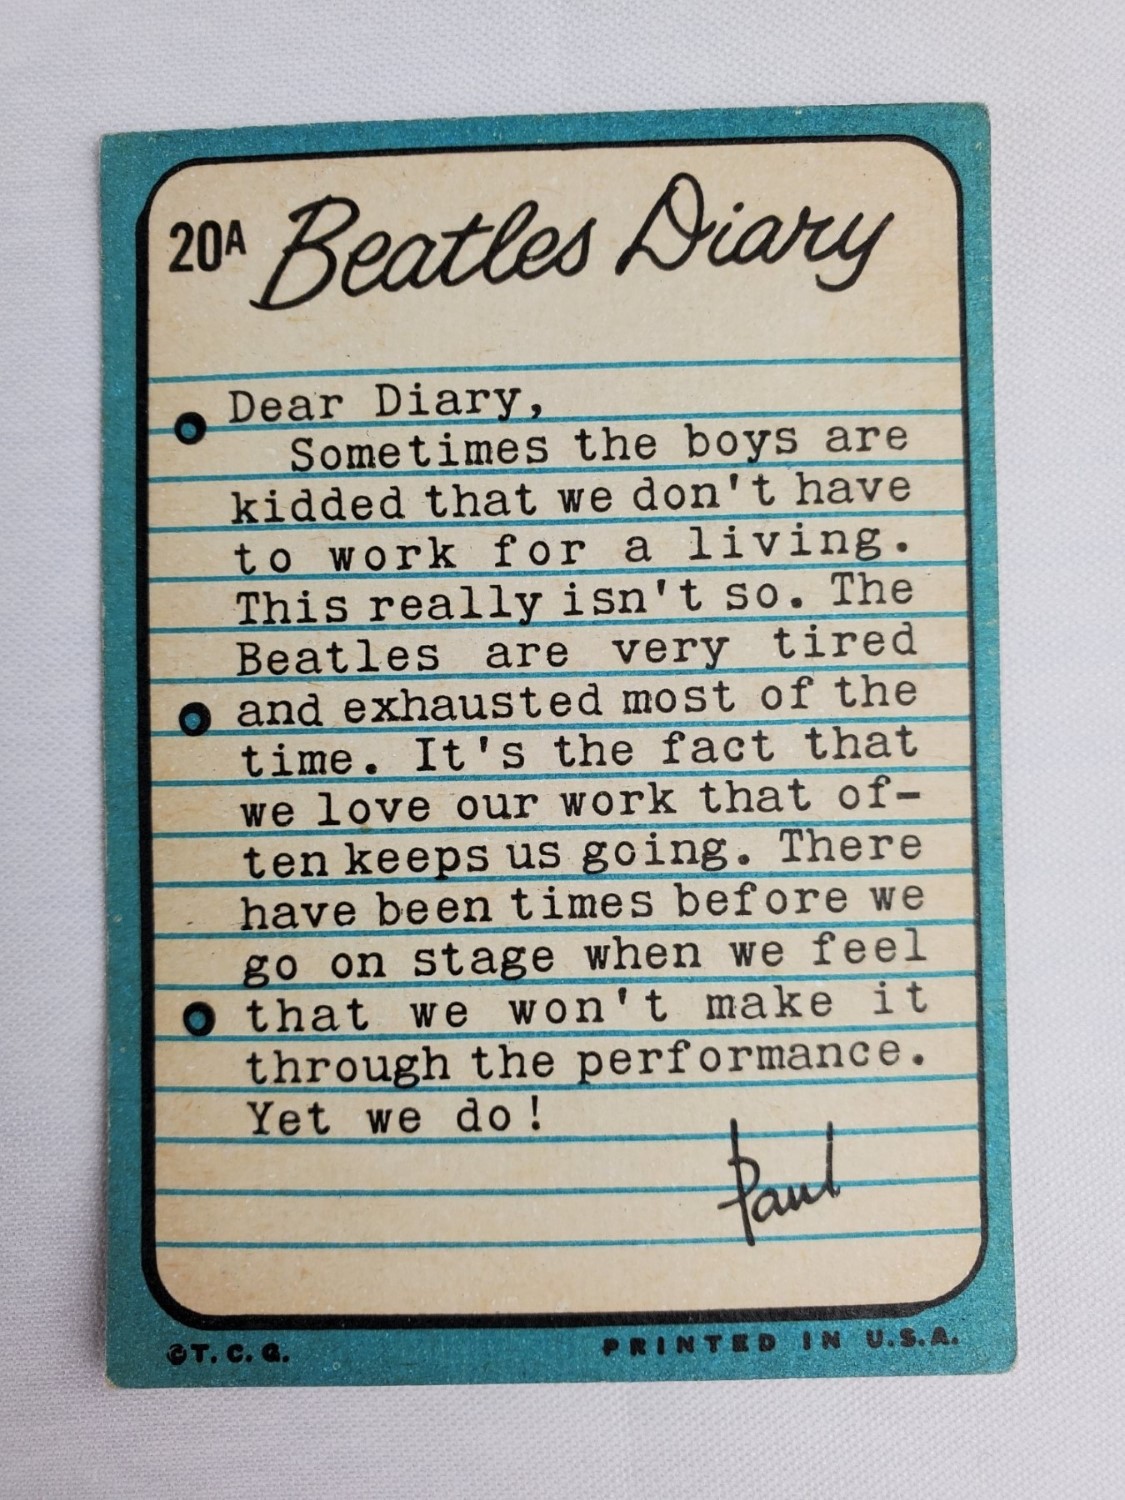 20A Beatles Diary
Dear Diary,
Sometimes the boys are
kidded that we don't have
to work for a living.
This really isn't so. The
Beatles are very tired
and exhausted most of the
time. It's the fact that
we love our work that of-
ten keeps us going. There
have been times before we
go on stage when we feel
that we won't make it
through the performance.
Yet we do!
Paul
©T.C.G. PRINTED IN U.S.A.